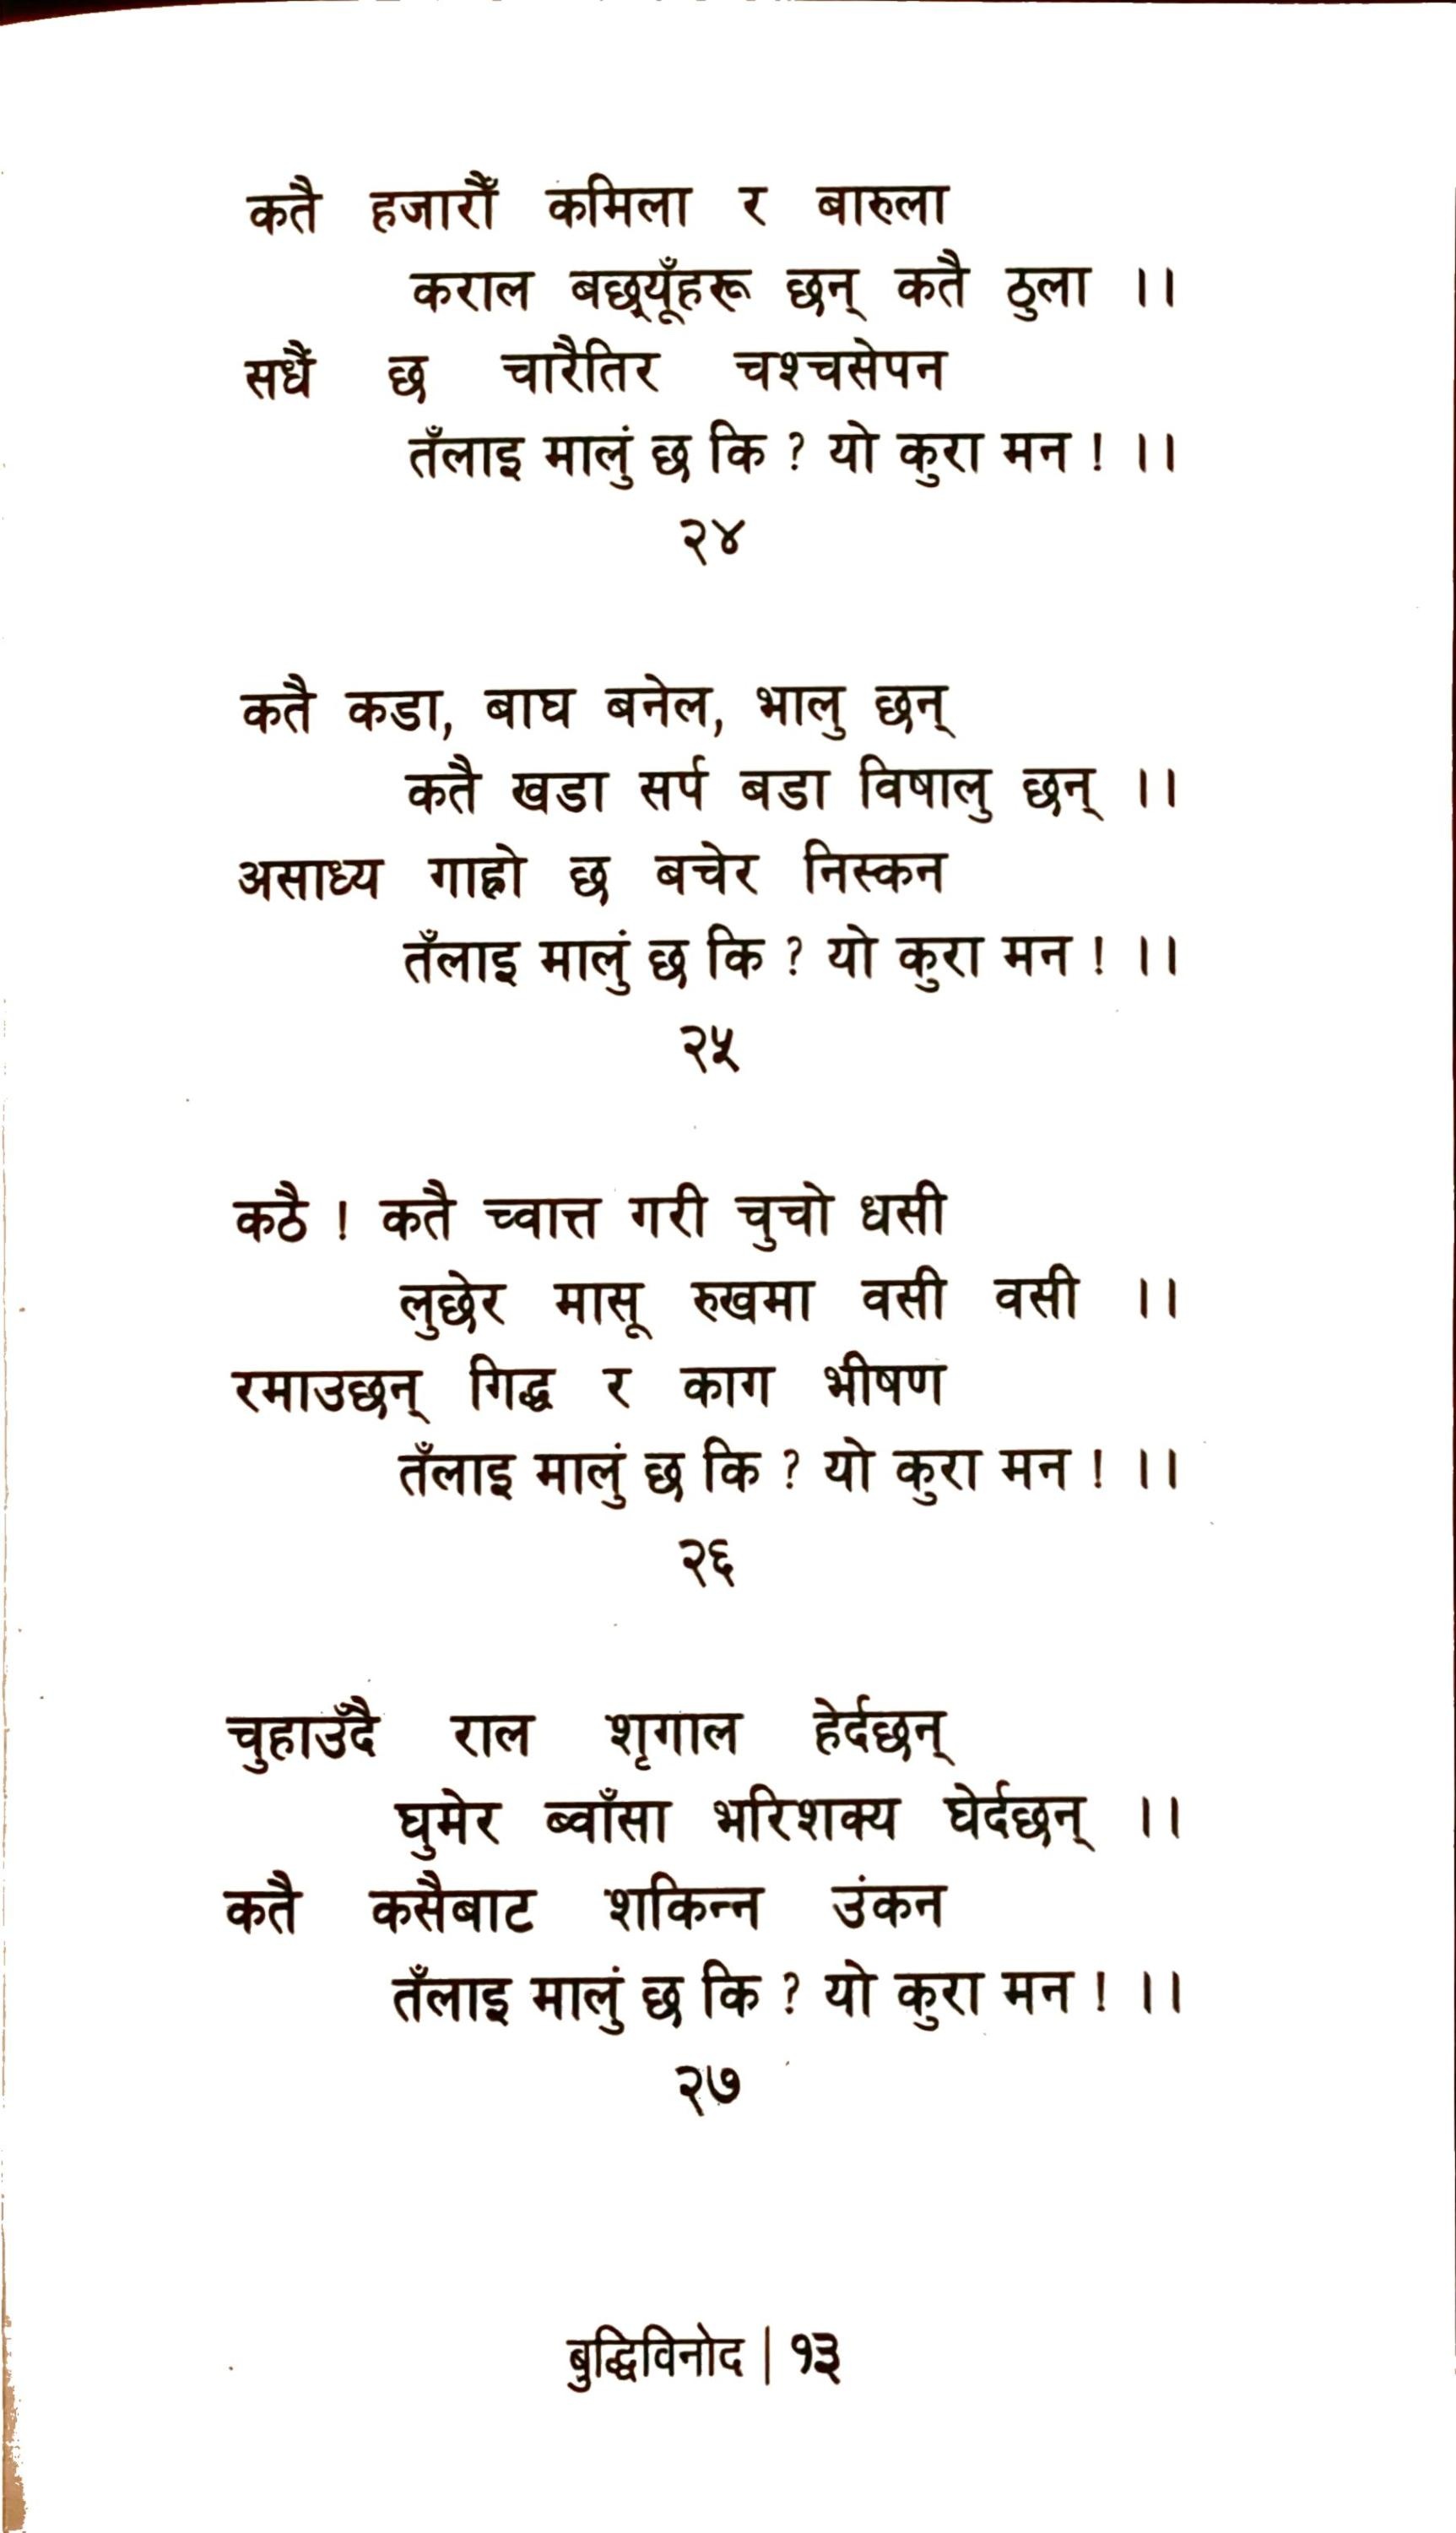 कतै हजारौँ कमिला र बारुला
कराल बछ्र्यूँहरू छन् कतै ठुला ।।
सधैँ छ चारैतिर चश्चसेपन
तँलाइ मालुं छ कि ? यो कुरा मन ! ।।
२४
कतै कडा, बाघ बनेल, भालु छन्
कतै खडा सर्प बडा विषालु छन् ।।
असाध्य गाह्रो छ बचेर निस्कन
तँलाइ मालुं छ कि ? यो कुरा मन ! ।।
२५
कठै ! कतै च्वात्त गरी चुचो धसी
लुछेर मासू रुखमा वसी वसी ।।
रमाउछन् गिद्ध र काग भीषण
तँलाइ मालुं छ कि ? यो कुरा मन ! ।।
२६
चुहाउँदै राल शृगाल हेर्दछन्
घुमेर ब्वाँसा भरिशक्य घेर्दछन् ।।
कतै कसैबाट शकिन्न उंकन
तँलाइ मालुं छ कि ? यो कुरा मन ! ।।
२७
बुद्धिविनोद | १३